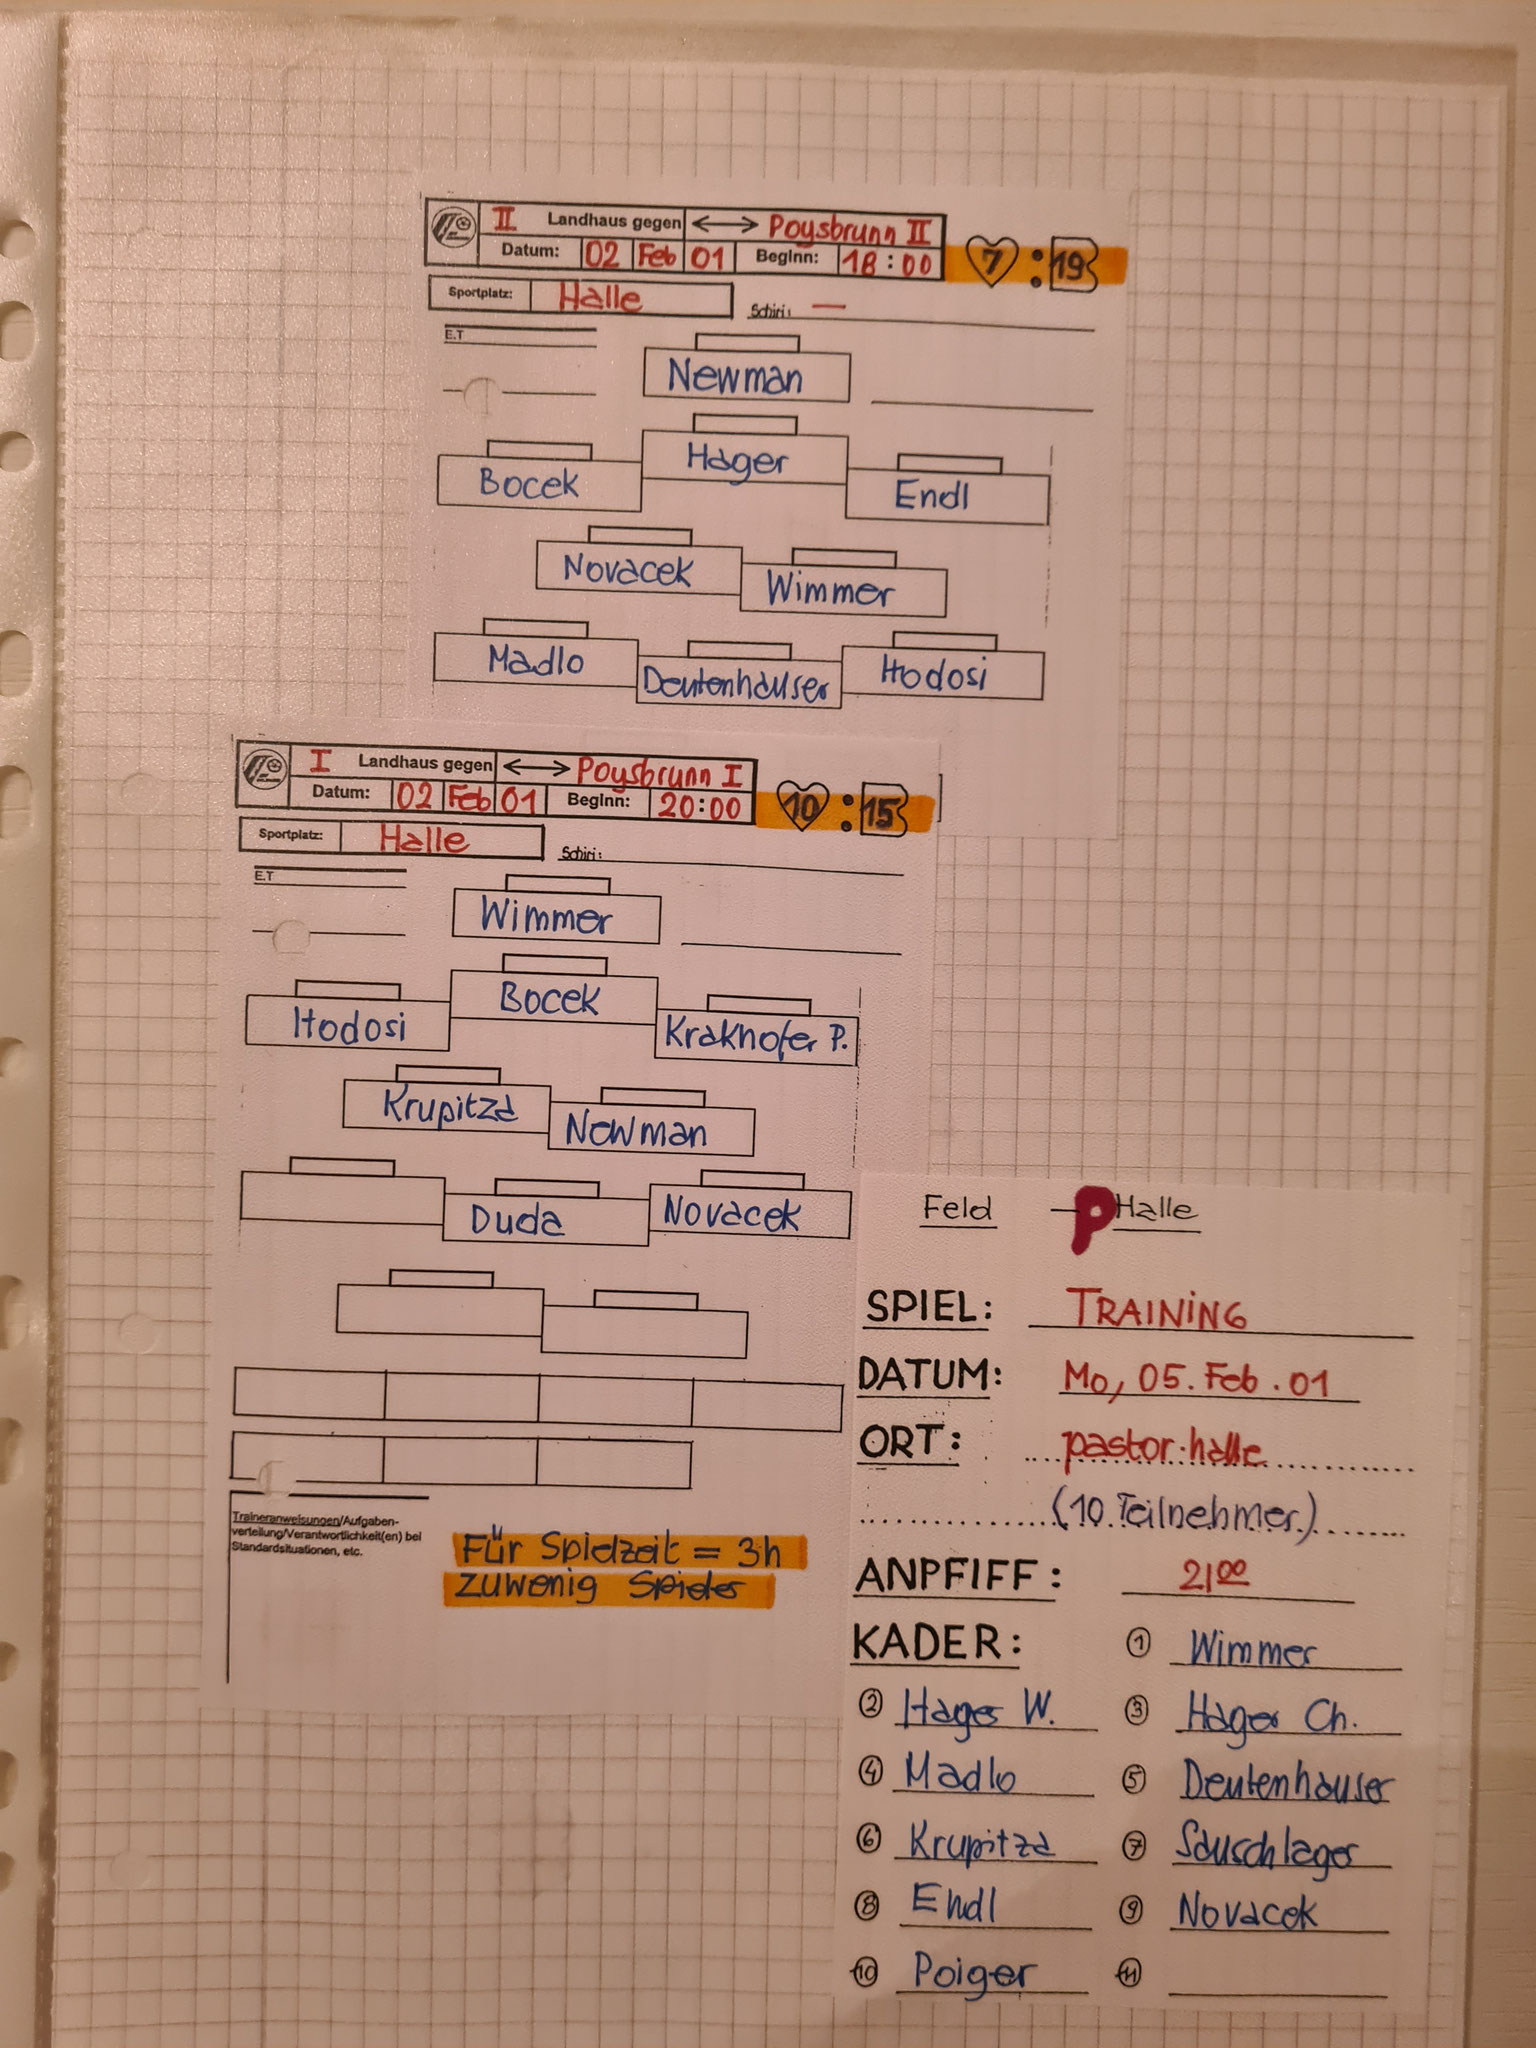 II Landhaus gegen Poysbrunn II
Datum: 02 Feb 01 Beginn: 18:00 7 : 19
Sportplatz: Halle Schiri: —
E.T
Newman
Hager
Bocek Endl
Novacek Wimmer
Madlo Deutenhauser Hodosi
I Landhaus gegen Poysbrunn I
Datum: 02 Feb 01 Beginn: 20:00 10 : 15
Sportplatz: Halle Schiri:
E.T
Wimmer
Bocek
Hodosi Krakhofer P.
Krupitza Newman
Duda Novacek
Traineranweisungen/Aufgaben-
verteilung/Verantwortlichkeit(en) bei
Standardsituationen, etc.
Für Spielzeit = 3h
zuwenig Spieler
Feld P Halle
SPIEL: TRAINING
DATUM: Mo, 05. Feb. 01
ORT: pastor.halle
(10 Teilnehmer)
ANPFIFF: 21 00
KADER: 1 Wimmer
2 Hager W. 3 Hager Ch.
4 Madlo 5 Deutenhauser
6 Krupitza 7 Sauschlager
8 Endl 9 Novacek
10 Poiger 11